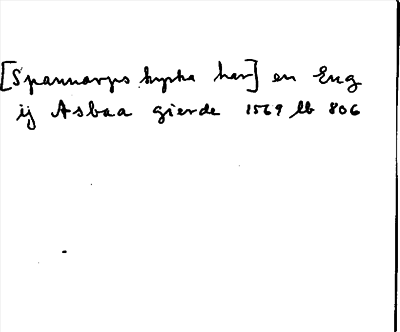 [Spannarps kyrka har] en Eng
ij Asbaa gierde 1569 lb 806